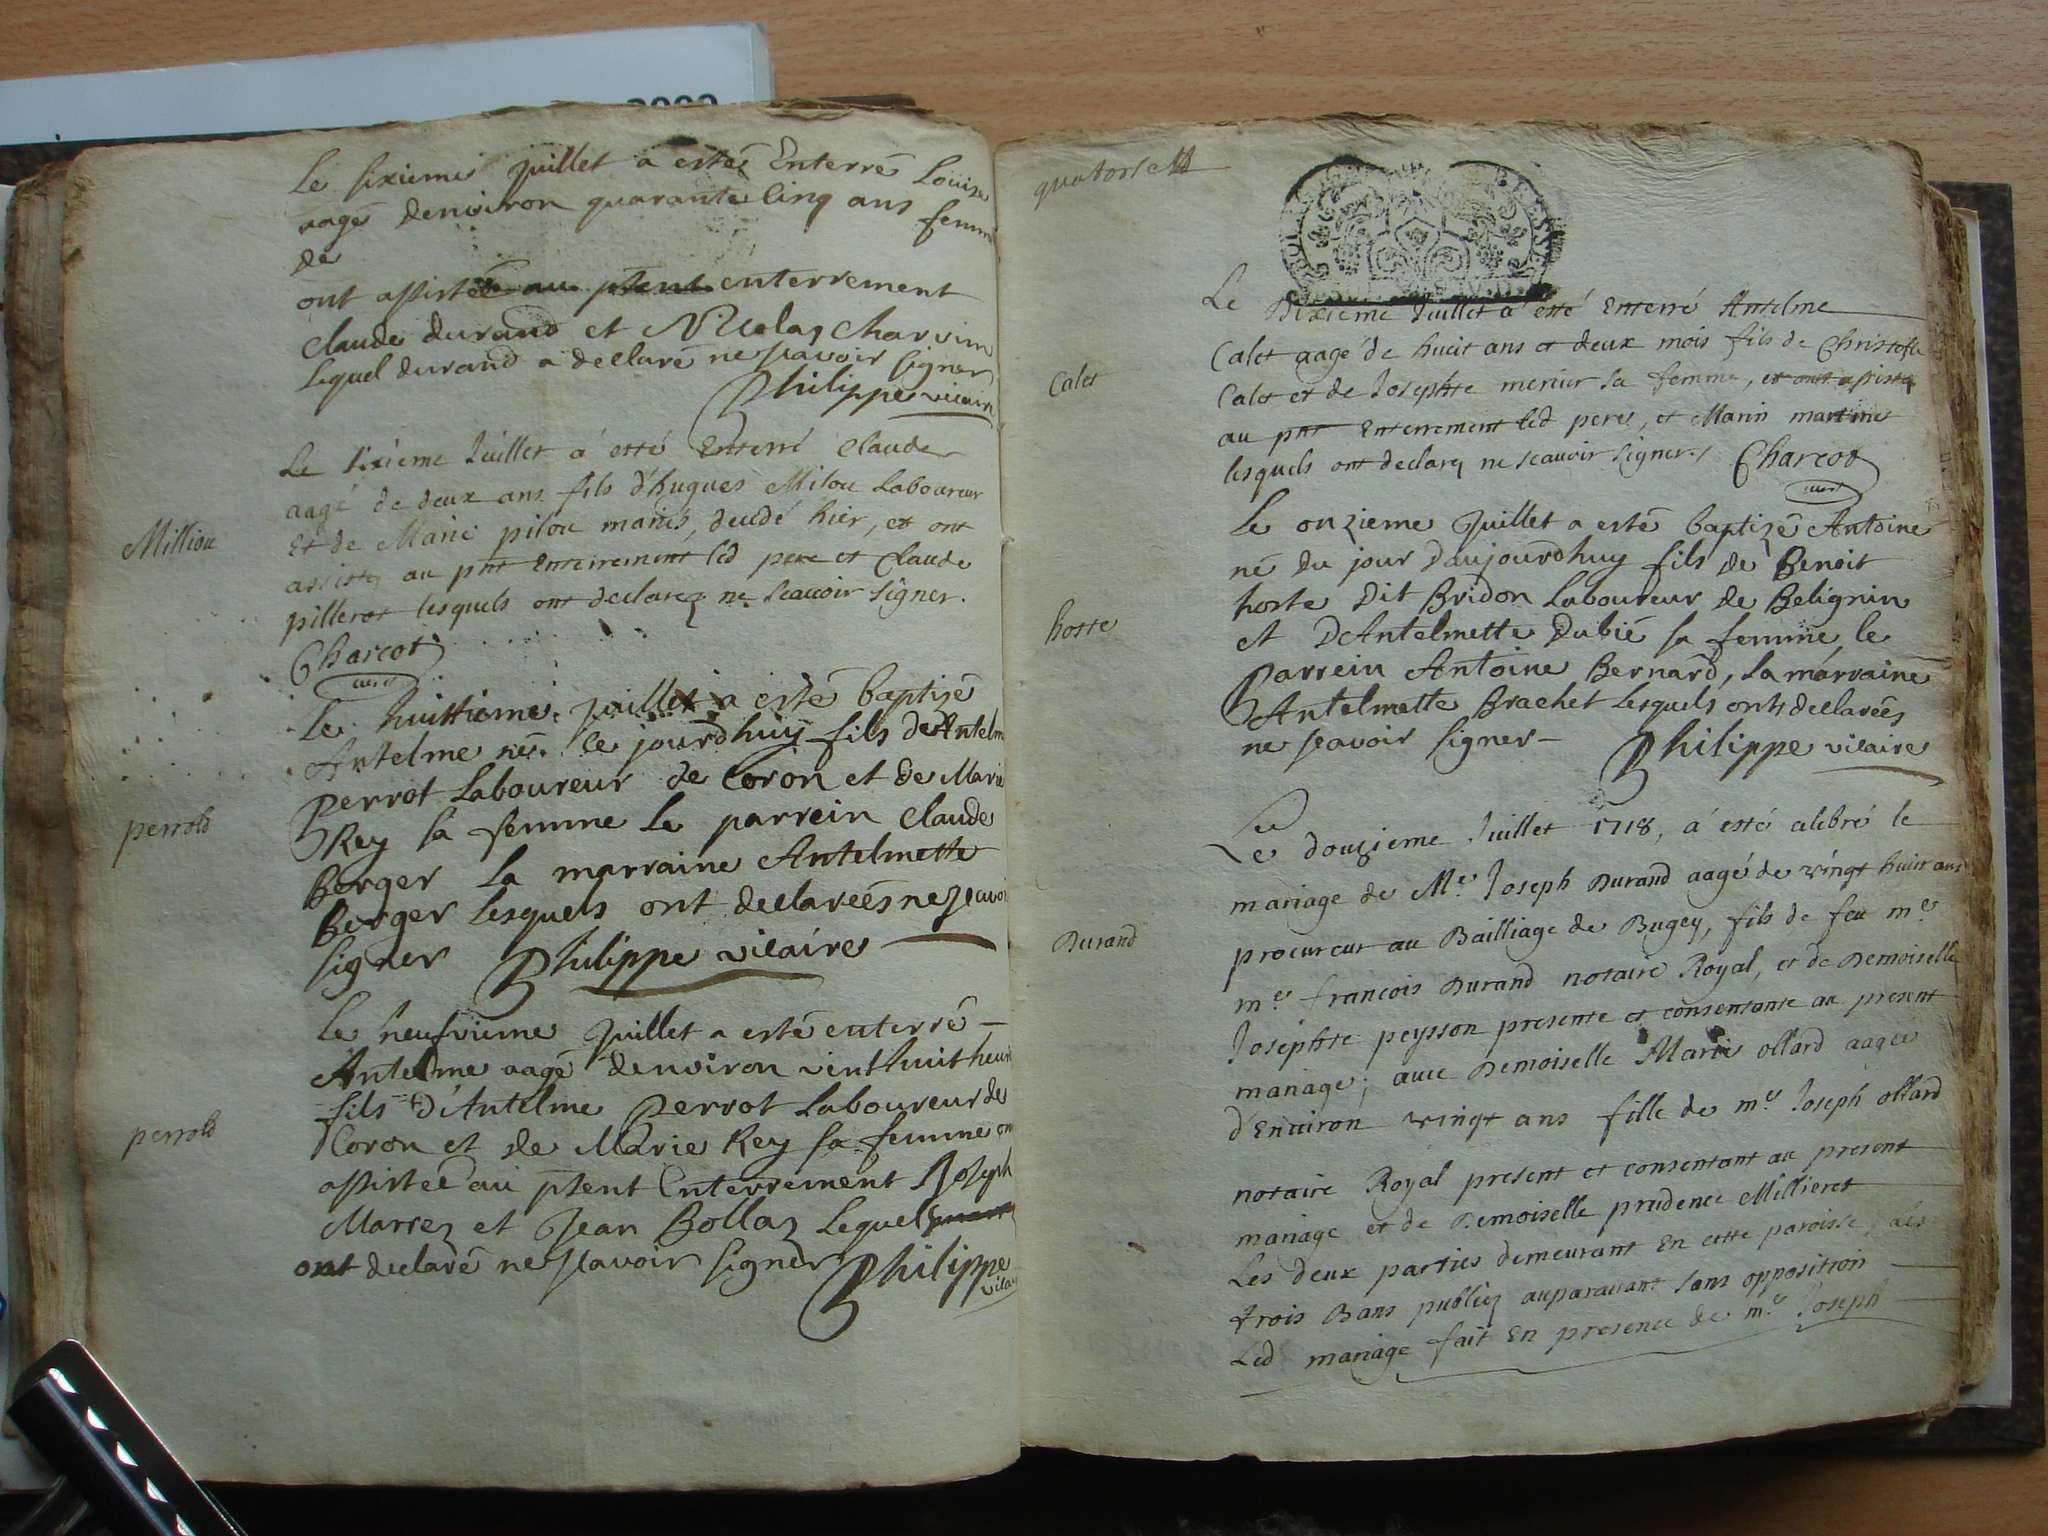 Le sixieme Juillet a esté Enterré Louise
aagé denviron quarante Cinq ans femme
de
ont assistée au pſent enterrement
Claude durand et Nicolas Charvin
Lequel durand a declaré ne scavoir signer
Philippe vicaire
Le sixieme Juillet á esté Enterré Claude
aagé de deux ans fils d'hugues Miliou Laboureur
Et de Marie pilou mariés, decedé hier, et ont
assistez au pnt Enterrement led pere et Claude
pilleros lesquels ont declarez ne scauoir signer.
Charcot
curé
Milliou
Le huittieme Juillet a esté baptizé
Antelme né ce jourdhuy fils de Antelme
Perrot Laboureur de Coron et de Marie
Rey sa femme le parrein Claude
Berger la marraine Antelmette
Berger Lesquels ont declareés ne scavoir
signer Philippe vicaire
perrod
Le neufvieme Juillet a esté enterré
Antelme aagé denviron vinthuit heures
fils d'Antelme Perrot Laboureur de
Coron et de Marie Rey sa femme ont
assisteé au pſent Enterrement Joseph
Marrez et Jean Bollaz Lequels
ont declaré ne scavoir signer Philippe
vicaire
perrod
quatorse
Le Dixieme Juillet a esté Enterré Antelme
Calet aagé de huict ans et deux mois fils de Christofle
Calet et de Josephte meriur sa femme, et ont assistez
au pnt Enterrement led pere, et Marin martines
lesquels ont declarez ne scauoir signer. Charcot
curé
Calet
Le onzieme Juillet a esté baptizé Antoine
né du jour Daujourdhuy fils de Benoit
hoste Dit Bridon Laboureur de Belignin
et DAntelmette Dubié sa femme, le
Parrein Antoine Bernard, La marraine
Antelmette Brachet Lesquels ont declareés
ne scavoir signer Philippe vicaire
hoste
Le douzieme Juillet 1718, á esté celebré le
mariage de Me. Joseph Durand aagé de vingt huict ans
procureur au Bailliage de Bugey, fils de feu me.
me. françois Durand notaire Royal, et de Demoiselle
Josephte peysson presente et consentante au present
mariage; auec Demoiselle Marie ollard aagée
d'Enuiron vingt ans fille de me. Joseph ollard
notaire Royal present et consentant au present
mariage et de Demoiselle prudence Millieret
Les deux parties demeurant En cette paroisse, Les
trois Bans publiez auparauant sans opposition
Led mariage fait En presence de me. Joseph
Durand